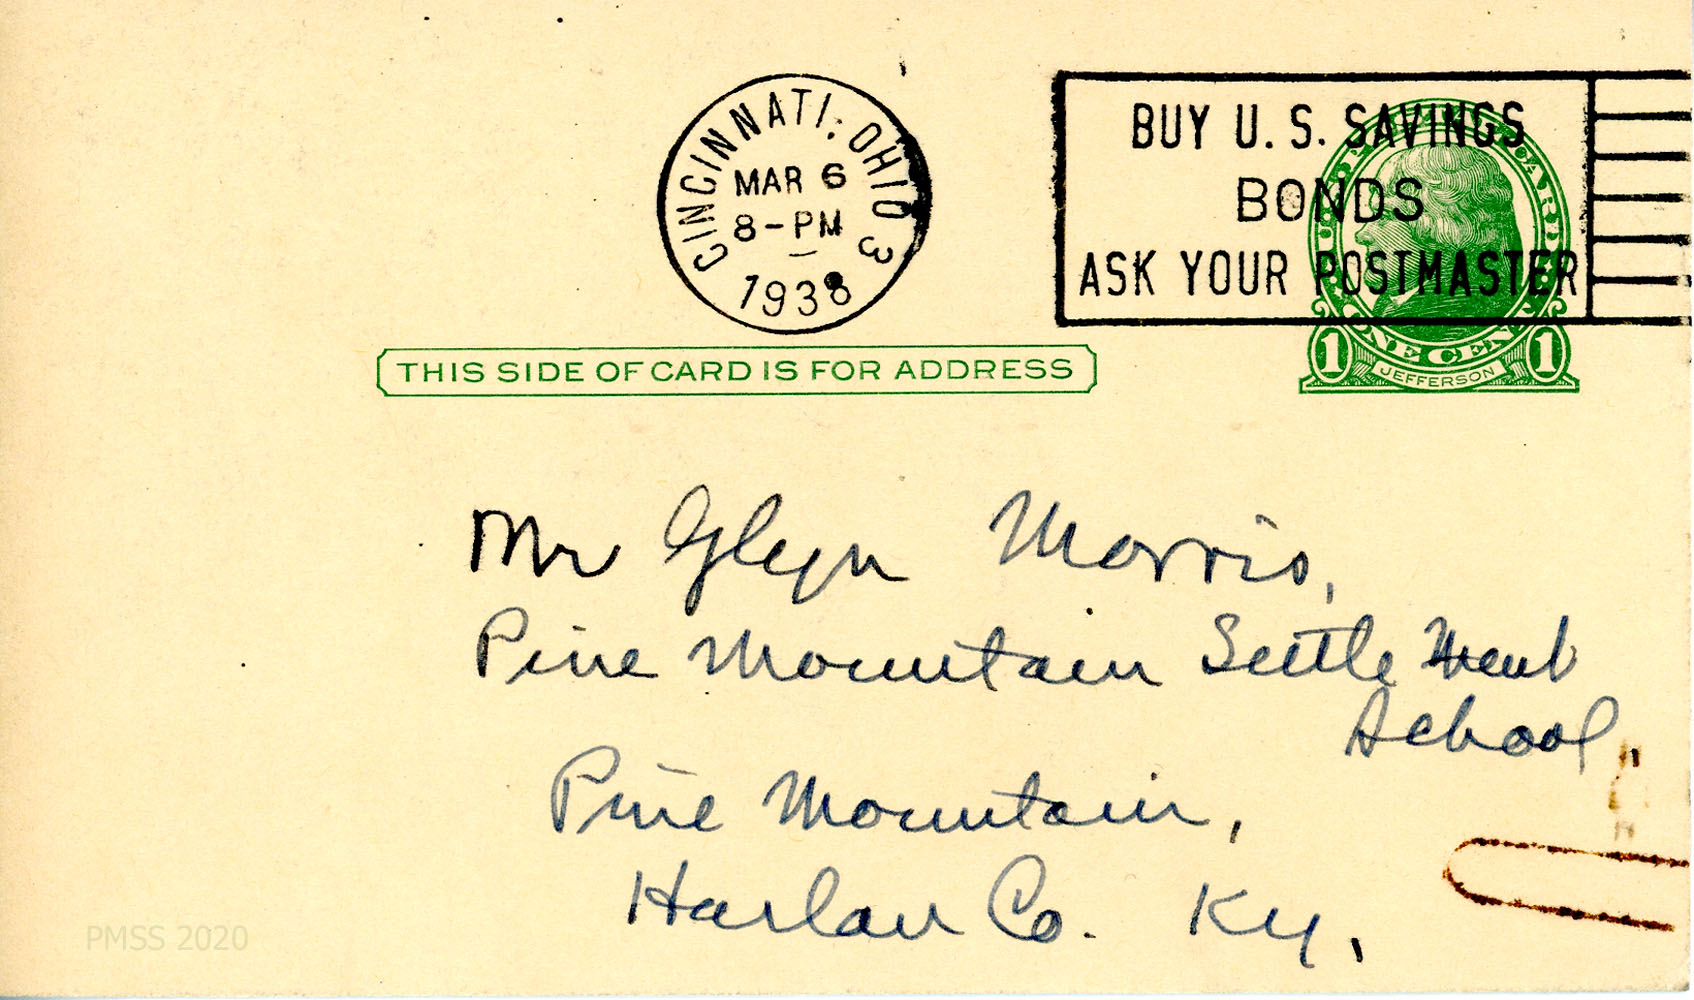 CINCINNATI, OHIO 3
MAR 6
8-PM
1938
BUY U. S. SAVINGS
BONDS
ASK YOUR POSTMASTER
ONE CENT
1 JEFFERSON 1
THIS SIDE OF CARD IS FOR ADDRESS
Mr Glyn Morris,
Pine Mountain Settlement
School,
Pine Mountain,
Harlan Co. Ky.
PMSS 2020